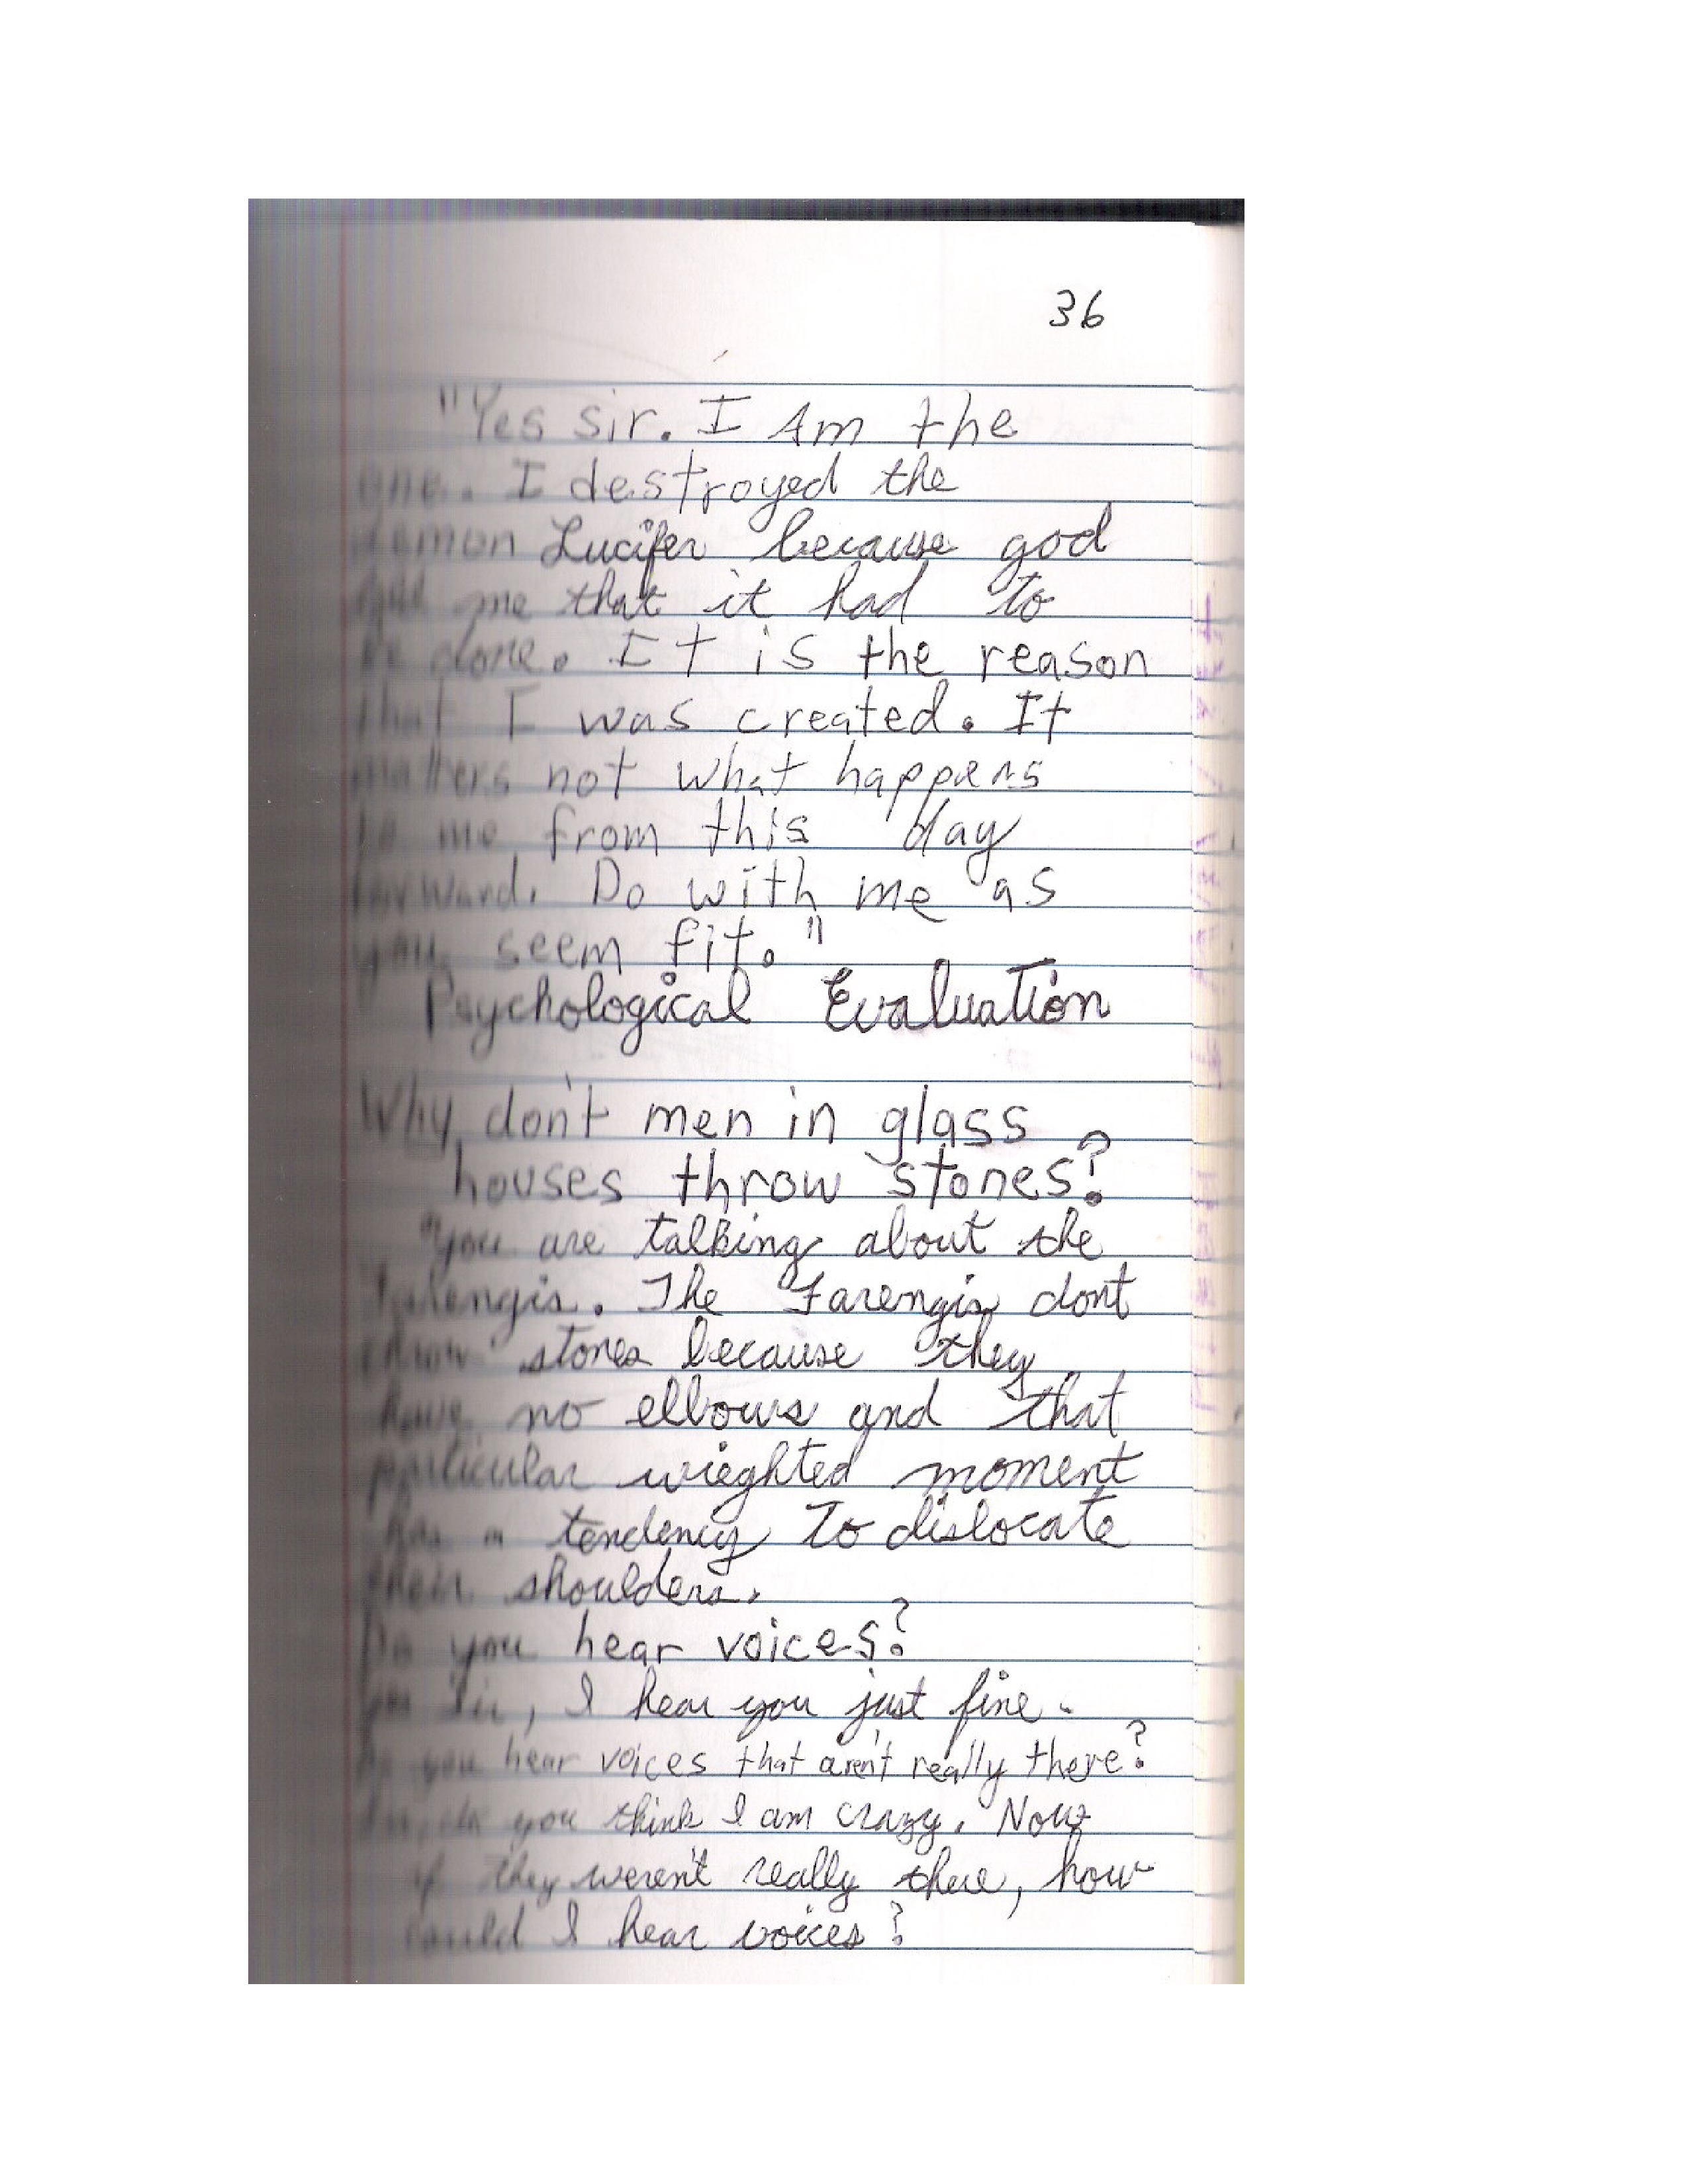 36
"Yes sir. I Am the
one. I destroyed the
demon Lucifer because god
me that it had to
be done. It is the reason
that I was created. It
matters not what happens
to me from this day
forward. Do with me as
you seem fit."
Psychological Evaluation
Why don't men in glass
houses throw stones?
"you are talking about the
Farengis. The Farengis dont
throw stones because they
have no elbows and that
particular wieghted moment
has a tendency to dislocate
their shoulders.
Do you hear voices?
Sir, I hear you just fine.
Do you hear voices that aren't really there?
do you think I am crazy. Now
if they weren't really there, how
could I hear voices?